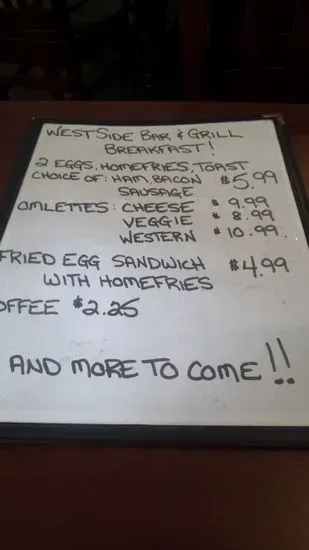 WESTSIDE BAR & GRILL
BREAKFAST!
2 EGGS, HOMEFRIES, TOAST
CHOICE OF: HAM, BACON $5.99
SAUSAGE
OMLETTES: CHEESE $9.99
VEGGIE $8.99
WESTERN $10.99
FRIED EGG SANDWICH $4.99
WITH HOMEFRIES
OFFEE $2.25
AND MORE TO COME!!